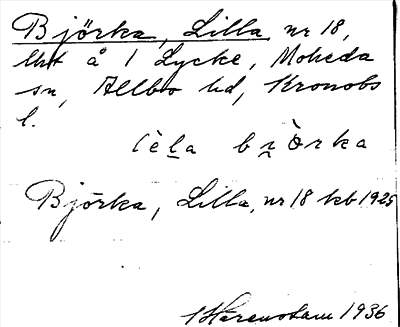 Björka, Lilla, nr 18,
lht å 1 Lycke, Moheda
sn, Allbo hd, Kronobs
l.
lèl̲a bròrka
Björka, Lilla, nr 18 kb 1925
1936